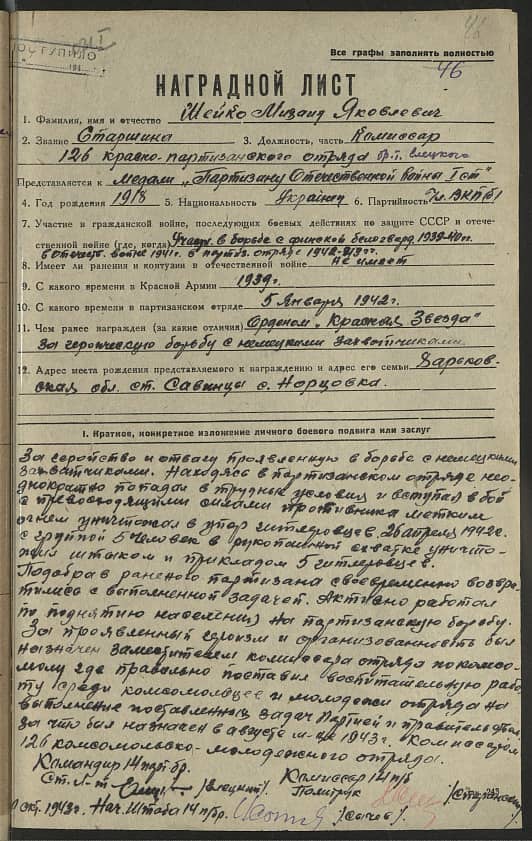 46
ПОСТУПИЛО
Все графы заполнять полностью
46
НАГРАДНОЙ ЛИСТ
1. Фамилия, имя и отчество Шейко Яковлевич
2. Звание Старшина 3. Должность, часть Комиссар
126 красно-партизанского отряда
Представляется к медали „Партизану Отечественной Войны I ст"
4. Год рождения 1918 5. Национальность Украинец 6. Партийность Чл. ВКП(б)
7. Участие в гражданской войне, последующих боевых действиях по защите СССР и отече-
ственной войне (где, когда) Участ. в борьбе с финской белогвард. 1939-40гг.
в отечеств. войне 1941г. в партиз. отряде 1942-
8. Имеет ли ранения и контузии в отечественной войне не имеет
9. С какого времени в Красной Армии 1939г.
10. С какого времени в партизанском отряде 5 Января 1942г.
11. Чем ранее награжден (за какие отличия) Орденом „Красная Звезда"
за героическую борьбу с немецкими захватчиками.
12. Адрес места рождения представляемого к награждению и адрес его семьи Харьков-
ская обл. ст. Савинцы с.
I. Краткое, конкретное изложение личного боевого подвига или заслуг
За геройство и отвагу проявленную в борьбе с немецкими
захватчиками. Находясь в партизанском отряде нео-
днократно попадал в трудные условия и вступал в бой
с превосходящими силами противника метким
огнем уничтожал в упор гитлеровцев. 26 апреля 1942г.
с группой 5 человек в рукопашной схватке уничто-
жил штыком и прикладом 5 гитлеровцев.
Подобрав раненого партизана своевременно возвра-
тились с выполненной задачей. Активно работал
по поднятию населения на партизанскую борьбу.
За проявленный героизм и организованность был
назначен заместителем комиссара отряда по комсо-
молу где правильно поставил воспитательную рабо-
ту среди комсомольцев и молодежи отряда на
выполнение поставленных задач Партией и правительством.
за что был назначен в августе м-це 1943г. Комиссаром
126 комсомольско-молодежного отряда.
Командир 14 парт. бр. Комиссар 14 п/б
Ст. Л-т /Елецкий/ Политрук
окт. 1943г. Нач. Штаба 14 п/бр. /Сычев/